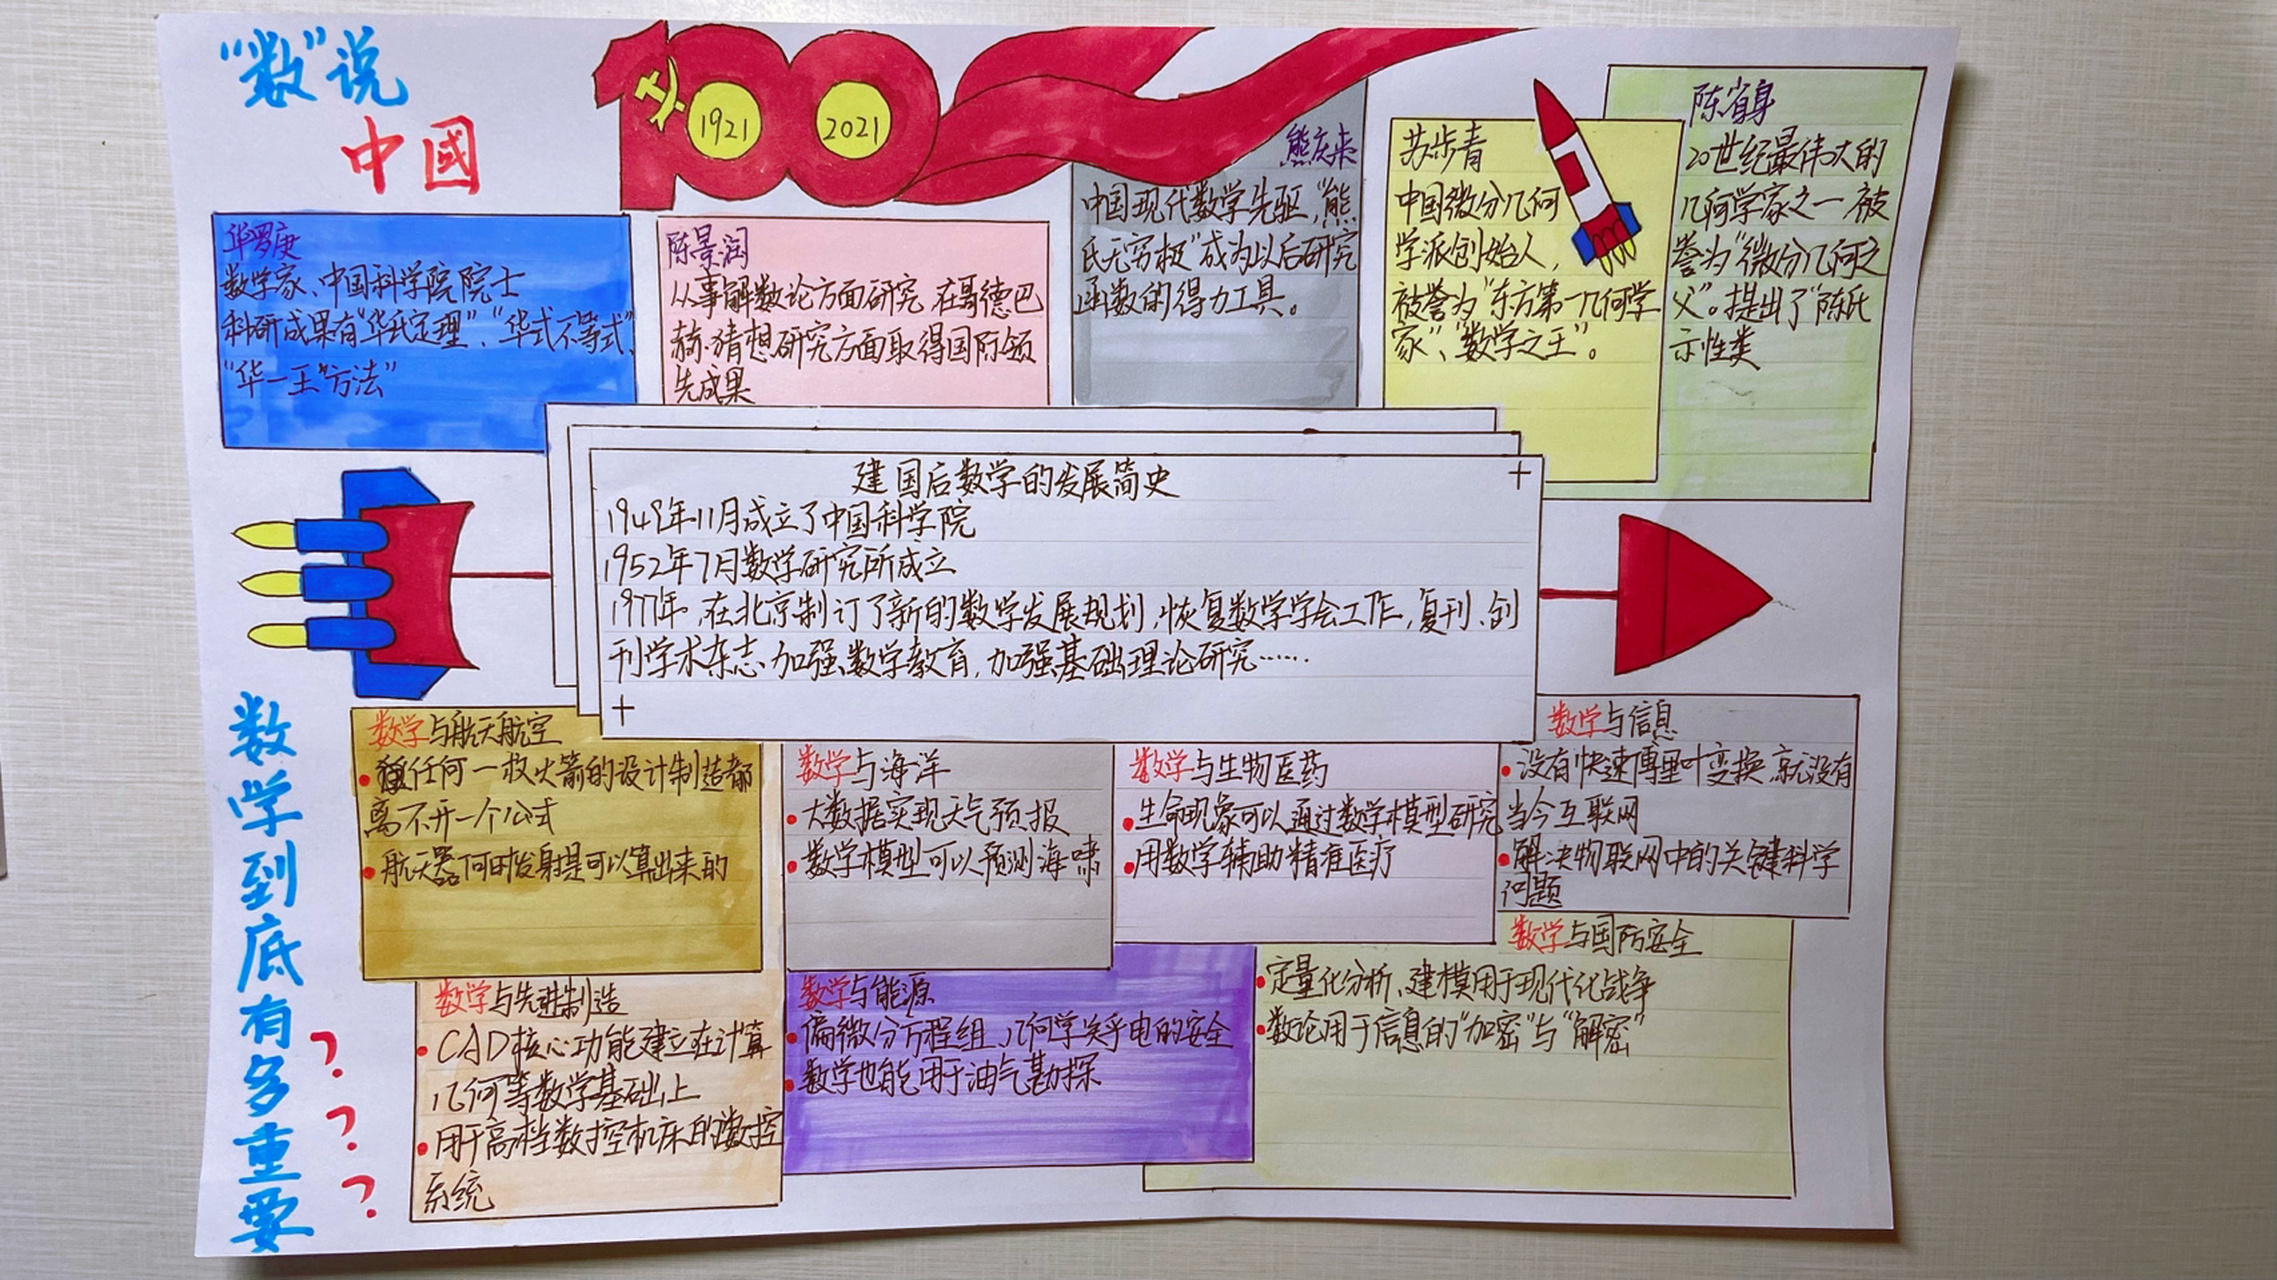 “数”说
中國
1921
2021
华罗庚
数学家、中国科学院院士
科研成果有“华氏定理”、“华式不等式”、
“华一王”方法”
陈景润
从事解数论方面研究,在哥德巴
赫猜想研究方面取得国际领
先成果
熊庆来
中国现代数学先驱,“熊
氏无穷极”成为以后研究
函数的得力工具。
苏步青
中国微分几何
学派创始人,
被誉为“东方第一几何学
家”、“数学之王”。
陈省身
20世纪最伟大的
几何学家之一 被
誉为“微分几何之
父”。提出了“陈氏
示性类
建国后数学的发展简史
1949年11月成立了中国科学院
1952年7月数学研究所成立
1977年,在北京制订了新的数学发展规划,恢复数学学会工作,复刊、创
刊学术杂志、加强数学教育,加强基础理论研究……
数学到底有多重要
???
数学与航天航空
任何一枚火箭的设计制造都
离不开一个公式
航天器何时发射是可以算出来的
数学与海洋
大数据实现天气预报
数学模型可以预测海啸
数学与生物医药
生命现象可以通过数学模型研究
用数学辅助精准医疗
数学与信息
没有快速傅里叶变换 就没有
当今互联网
解决物联网中的关键科学
问题
数学与先进制造
CAD核心功能建立在计算
几何等数学基础上
用于高档数控机床的数控
系统
数学与能源
偏微分方程组、几何学关乎电的安全
数学也能用于油气勘探
数学与国防安全
定量化分析、建模用于现代化战争
数论用于信息的“加密”与“解密”